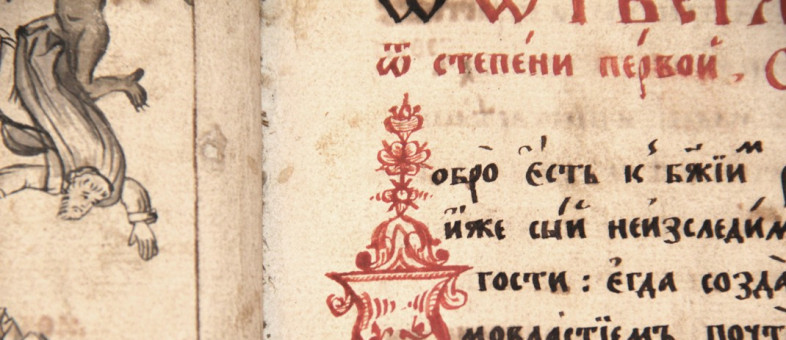 ѿ степе́ни пе́рвой.
обро̀ є҆́сть к̾ бж҃їи
и҆́же сы́й неи҆зследи́м
гости : є҆гда созда
мовластїемъ почт